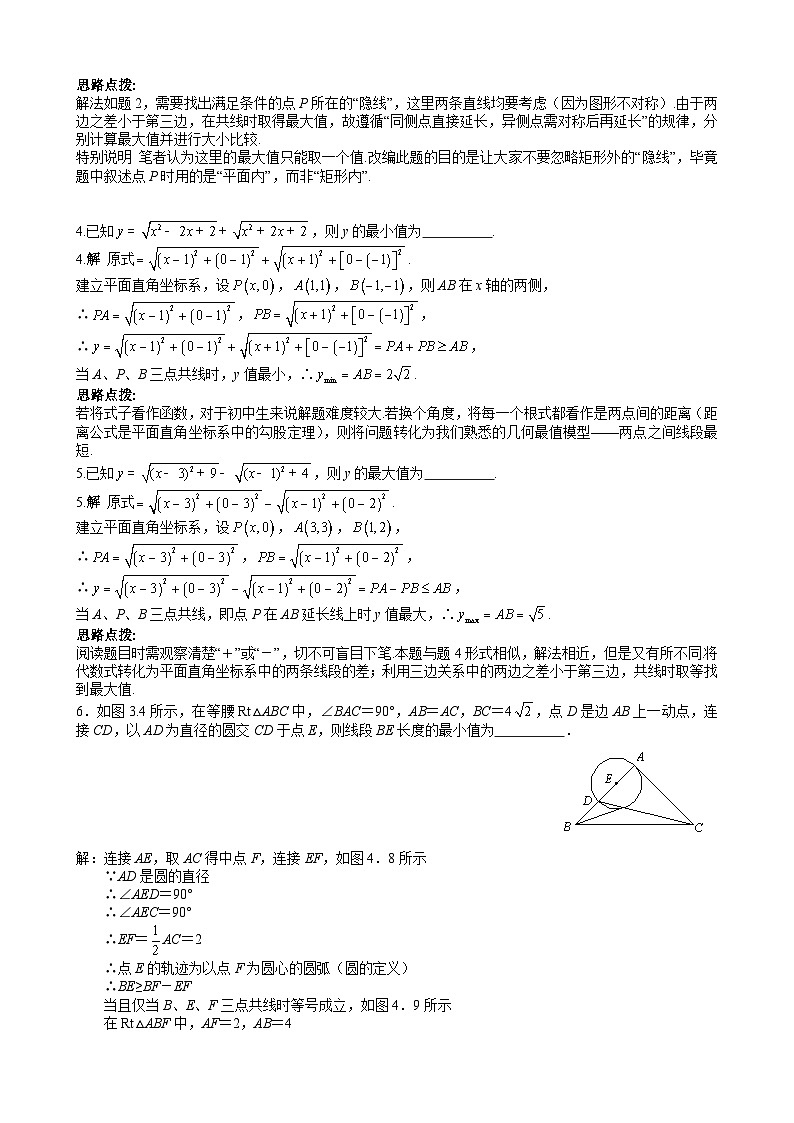 思路点拨:
解法如题 2，需要找出满足条件的点 P 所在的“隐线”，这里两条直线均要考虑（因为图形不对称）.由于两
边之差小于第三边，在共线时取得最大值，故遵循“同侧点直接延长，异侧点需对称后再延长”的规律，分
别计算最大值并进行大小比较.
特别说明 笔者认为这里的最大值只能取一个值.改编此题的目的是让大家不要忽略矩形外的“隐线”，毕竟
题中叙述点 P 时用的是“平面内”，而非“矩形内”.
4.已知 y = √(x² - 2x + 2) + √(x² + 2x + 2)，则 y 的最小值为__________.
4.解 原式 = √((x-1)² + (0-1)²) + √((x+1)² + [0-(-1)]²).
建立平面直角坐标系，设 P(x,0)，A(1,1)，B(-1,-1)，则 AB 在 x 轴的两侧，
∴ PA = √((x-1)² + (0-1)²)，PB = √((x+1)² + [0-(-1)]²)，
∴ y = √((x-1)² + (0-1)²) + √((x+1)² + [0-(-1)]²) = PA + PB ≥ AB，
当 A、P、B 三点共线时，y 值最小，∴ y_min = AB = 2√2.
思路点拨:
若将式子看作函数，对于初中生来说解题难度较大.若换个角度，将每一个根式都看作是两点间的距离（距
离公式是平面直角坐标系中的勾股定理），则将问题转化为我们熟悉的几何最值模型——两点之间线段最
短.
5.已知 y = √((x-3)² + 9) - √((x-1)² + 4)，则 y 的最大值为__________.
5.解 原式 = √((x-3)² + (0-3)²) - √((x-1)² + (0-2)²).
建立平面直角坐标系，设 P(x,0)，A(3,3)，B(1,2)，
∴ PA = √((x-3)² + (0-3)²)，PB = √((x-1)² + (0-2)²)，
∴ y = √((x-3)² + (0-3)²) - √((x-1)² + (0-2)²) = PA - PB ≤ AB，
当 A、P、B 三点共线，即点 P 在 AB 延长线上时 y 值最大，∴ y_max = AB = √5.
思路点拨:
阅读题目时需观察清楚“＋”或“－”，切不可盲目下笔.本题与题 4 形式相似，解法相近，但是又有所不同.将
代数式转化为平面直角坐标系中的两条线段的差；利用三边关系中的两边之差小于第三边，共线时取等找
到最大值.
6．如图 3.4 所示，在等腰 Rt△ABC 中，∠BAC＝90°，AB＝AC，BC＝4√2，点 D 是边 AB 上一动点，连
接 CD，以 AD 为直径的圆交 CD 于点 E，则线段 BE 长度的最小值为__________．
A
E
D
B
C
解：连接 AE，取 AC 得中点 F，连接 EF，如图 4．8 所示
∵AD 是圆的直径
∴∠AED＝90°
∴∠AEC＝90°
∴EF＝1/2 AC＝2
∴点 E 的轨迹为以点 F 为圆心的圆弧（圆的定义）
∴BE≥BF－EF
当且仅当 B、E、F 三点共线时等号成立，如图 4．9 所示
在 Rt△ABF 中，AF＝2，AB＝4